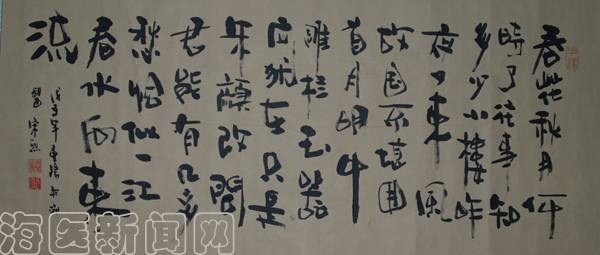 春花秋月何
時了往事知
多少小樓昨
夜又東風
故国不堪回
首月明中
雕栏玉砌
应犹在只是
朱顏改問
君能有几多
愁恰似一江
春水向東
流
戊子年
海医新闻网